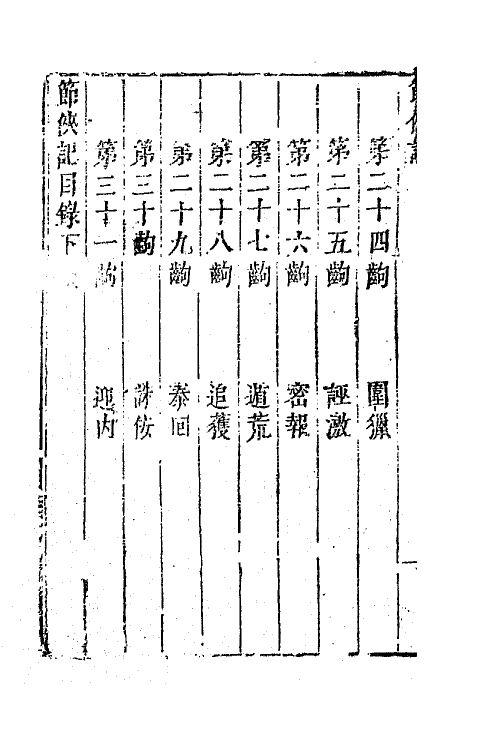 第二十四齣 圍獵
第二十五齣 誣激
第二十六齣 密報
第二十七齣 遁荒
第二十八齣 追獲
第二十九齣 泰回
第三十齣 誅佞
第三十一齣 迎內
節俠記目錄下